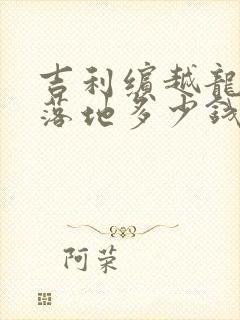 吉利缤越龍
落地多少钱
阿荣